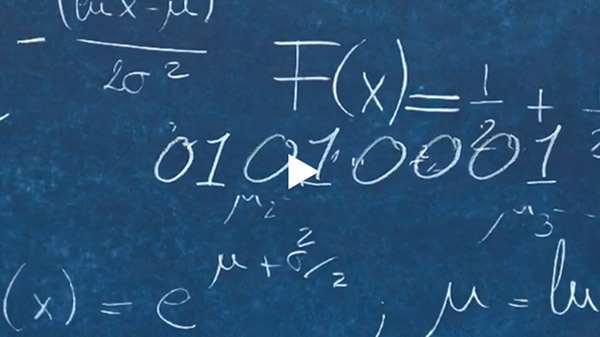 (ln x - μ)
- 2σ²
F(x) = 1/2 +
01 01 0001
μ₂ μ₃
(x) = e^μ + σ²/2 ; μ = ln